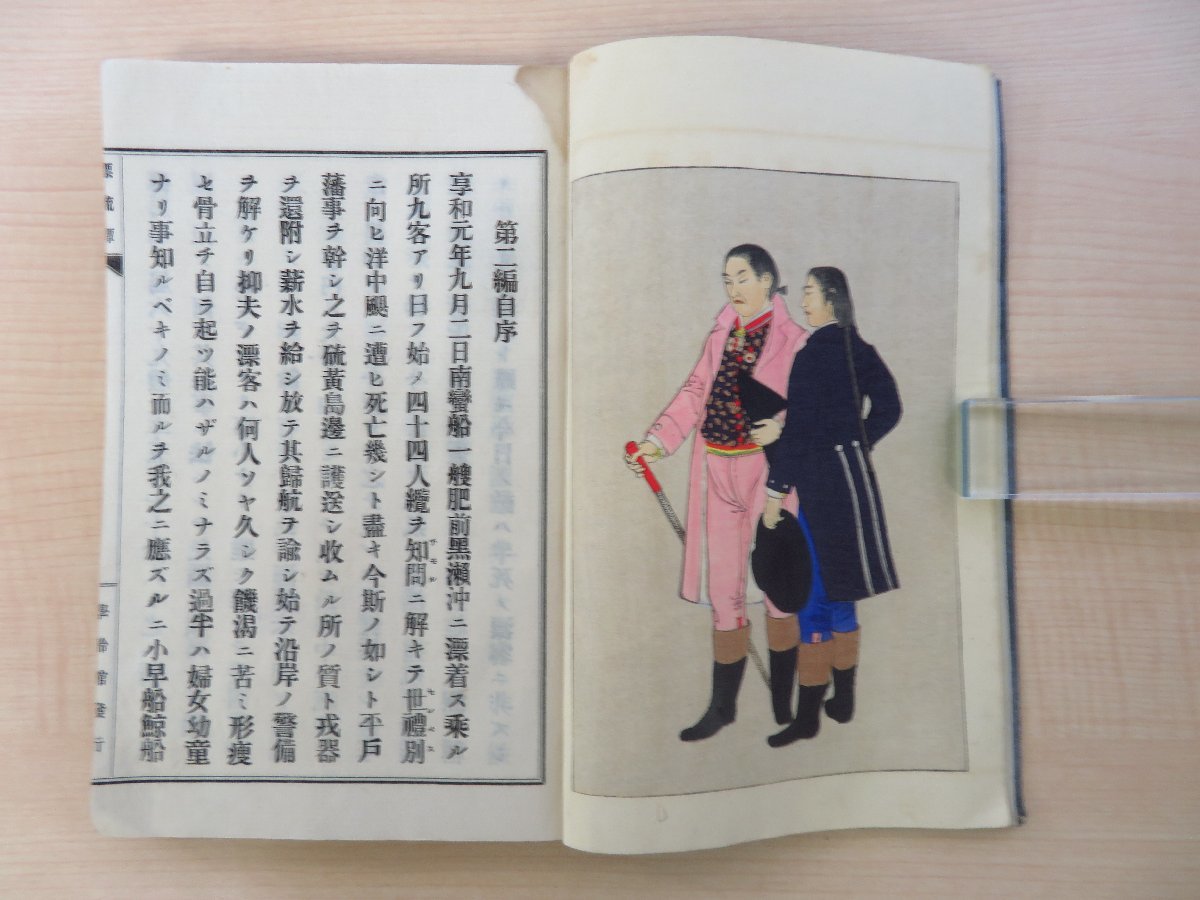 第二編自序
享和元年九月二日南蠻船一艘肥前黑瀨沖ニ漂着ス乘ル
所九客アリ日フ始メ四十四人纜ヲ知間ニ解キテ世禮別
ニ向ヒ洋中颶ニ遭ヒ死亡幾シト盡キ今斯ノ如シト平戶
藩事ヲ幹シ之ヲ硫黃島邊ニ護送シ收ムル所ノ質ト戎器
ヲ還附シ薪水ヲ給シ放テ其歸航ヲ諭シ始テ沿岸ノ警備
ヲ解ケリ抑夫ノ漂客ハ何人ソヤ久シク饑渴ニ苦ミ形瘦
セ骨立チ自ラ起ツ能ハザルノミナラズ過半ハ婦女幼童
ナリ事知ルベキノミ而ルヲ我之ニ應ズルニ小早船鯨船
漂流譚